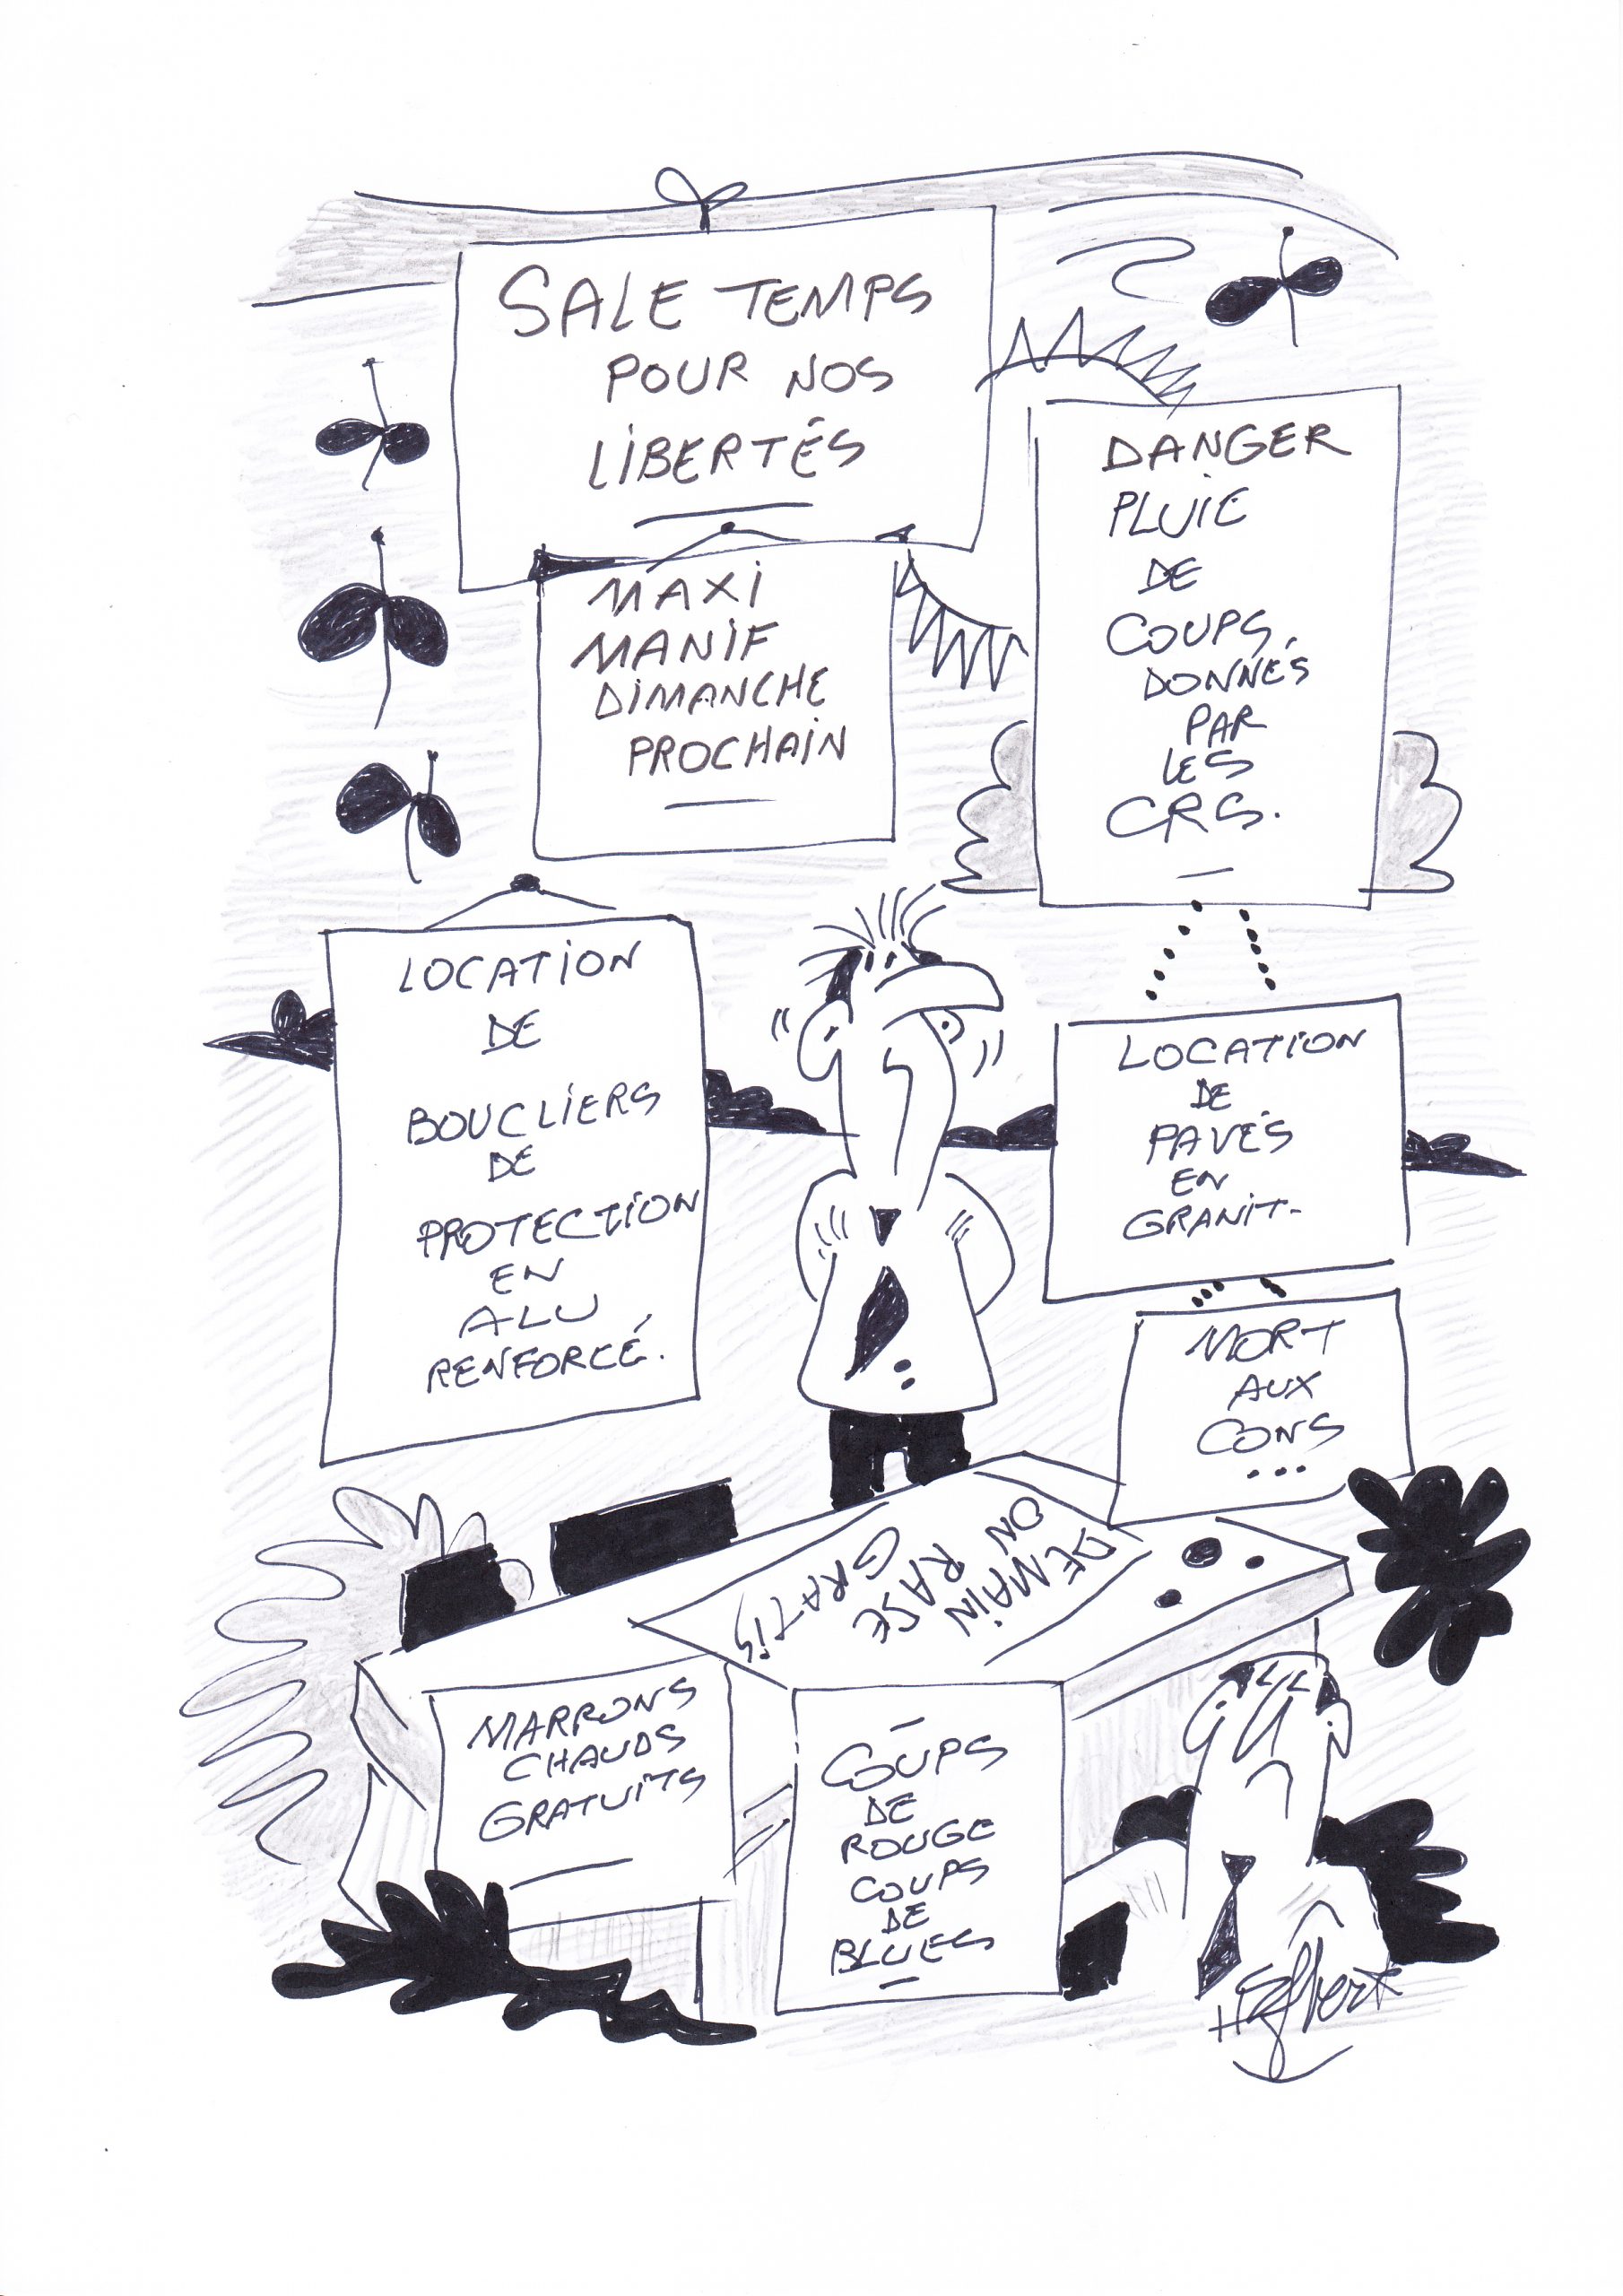 SALE TEMPS
POUR NOS
LIBERTÉS
MAXI
MANIF
DIMANCHE
PROCHAIN
DANGER
PLUIE
DE
COUPS
DONNÉS
PAR
LES
CRS.
LOCATION
DE
BOUCLIERS
DE
PROTECTION
EN
ALU
RENFORCÉ.
LOCATION
DE
PAVÉS
EN
GRANIT-
MORT
AUX
CONS
...
DEMAIN
ON RASE
GRATIS
MARRONS
CHAUDS
GRATUITS
COUPS
DE
ROUGE
COUPS
DE
BLUES